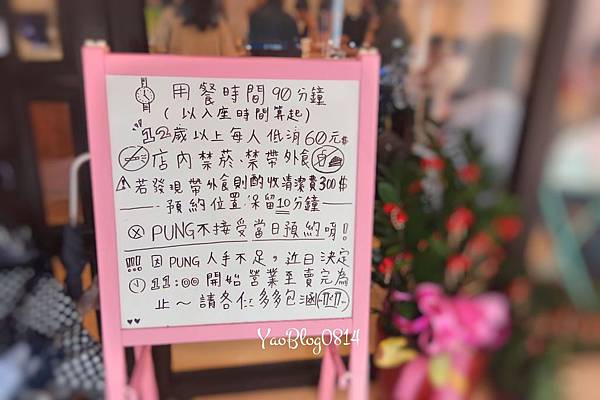 用餐時間90分鐘
(以入座時間算起)
12歲以上每人低消60元$
店內禁菸、禁帶外食
若發現帶外食則酌收清潔費300$
預約位置保留10分鐘
PUNG不接受當日預約唷!
!!!因PUNG人手不足,近日決定
11:00開始營業至賣完為
止~請各位多多包涵
YaoBlog0814